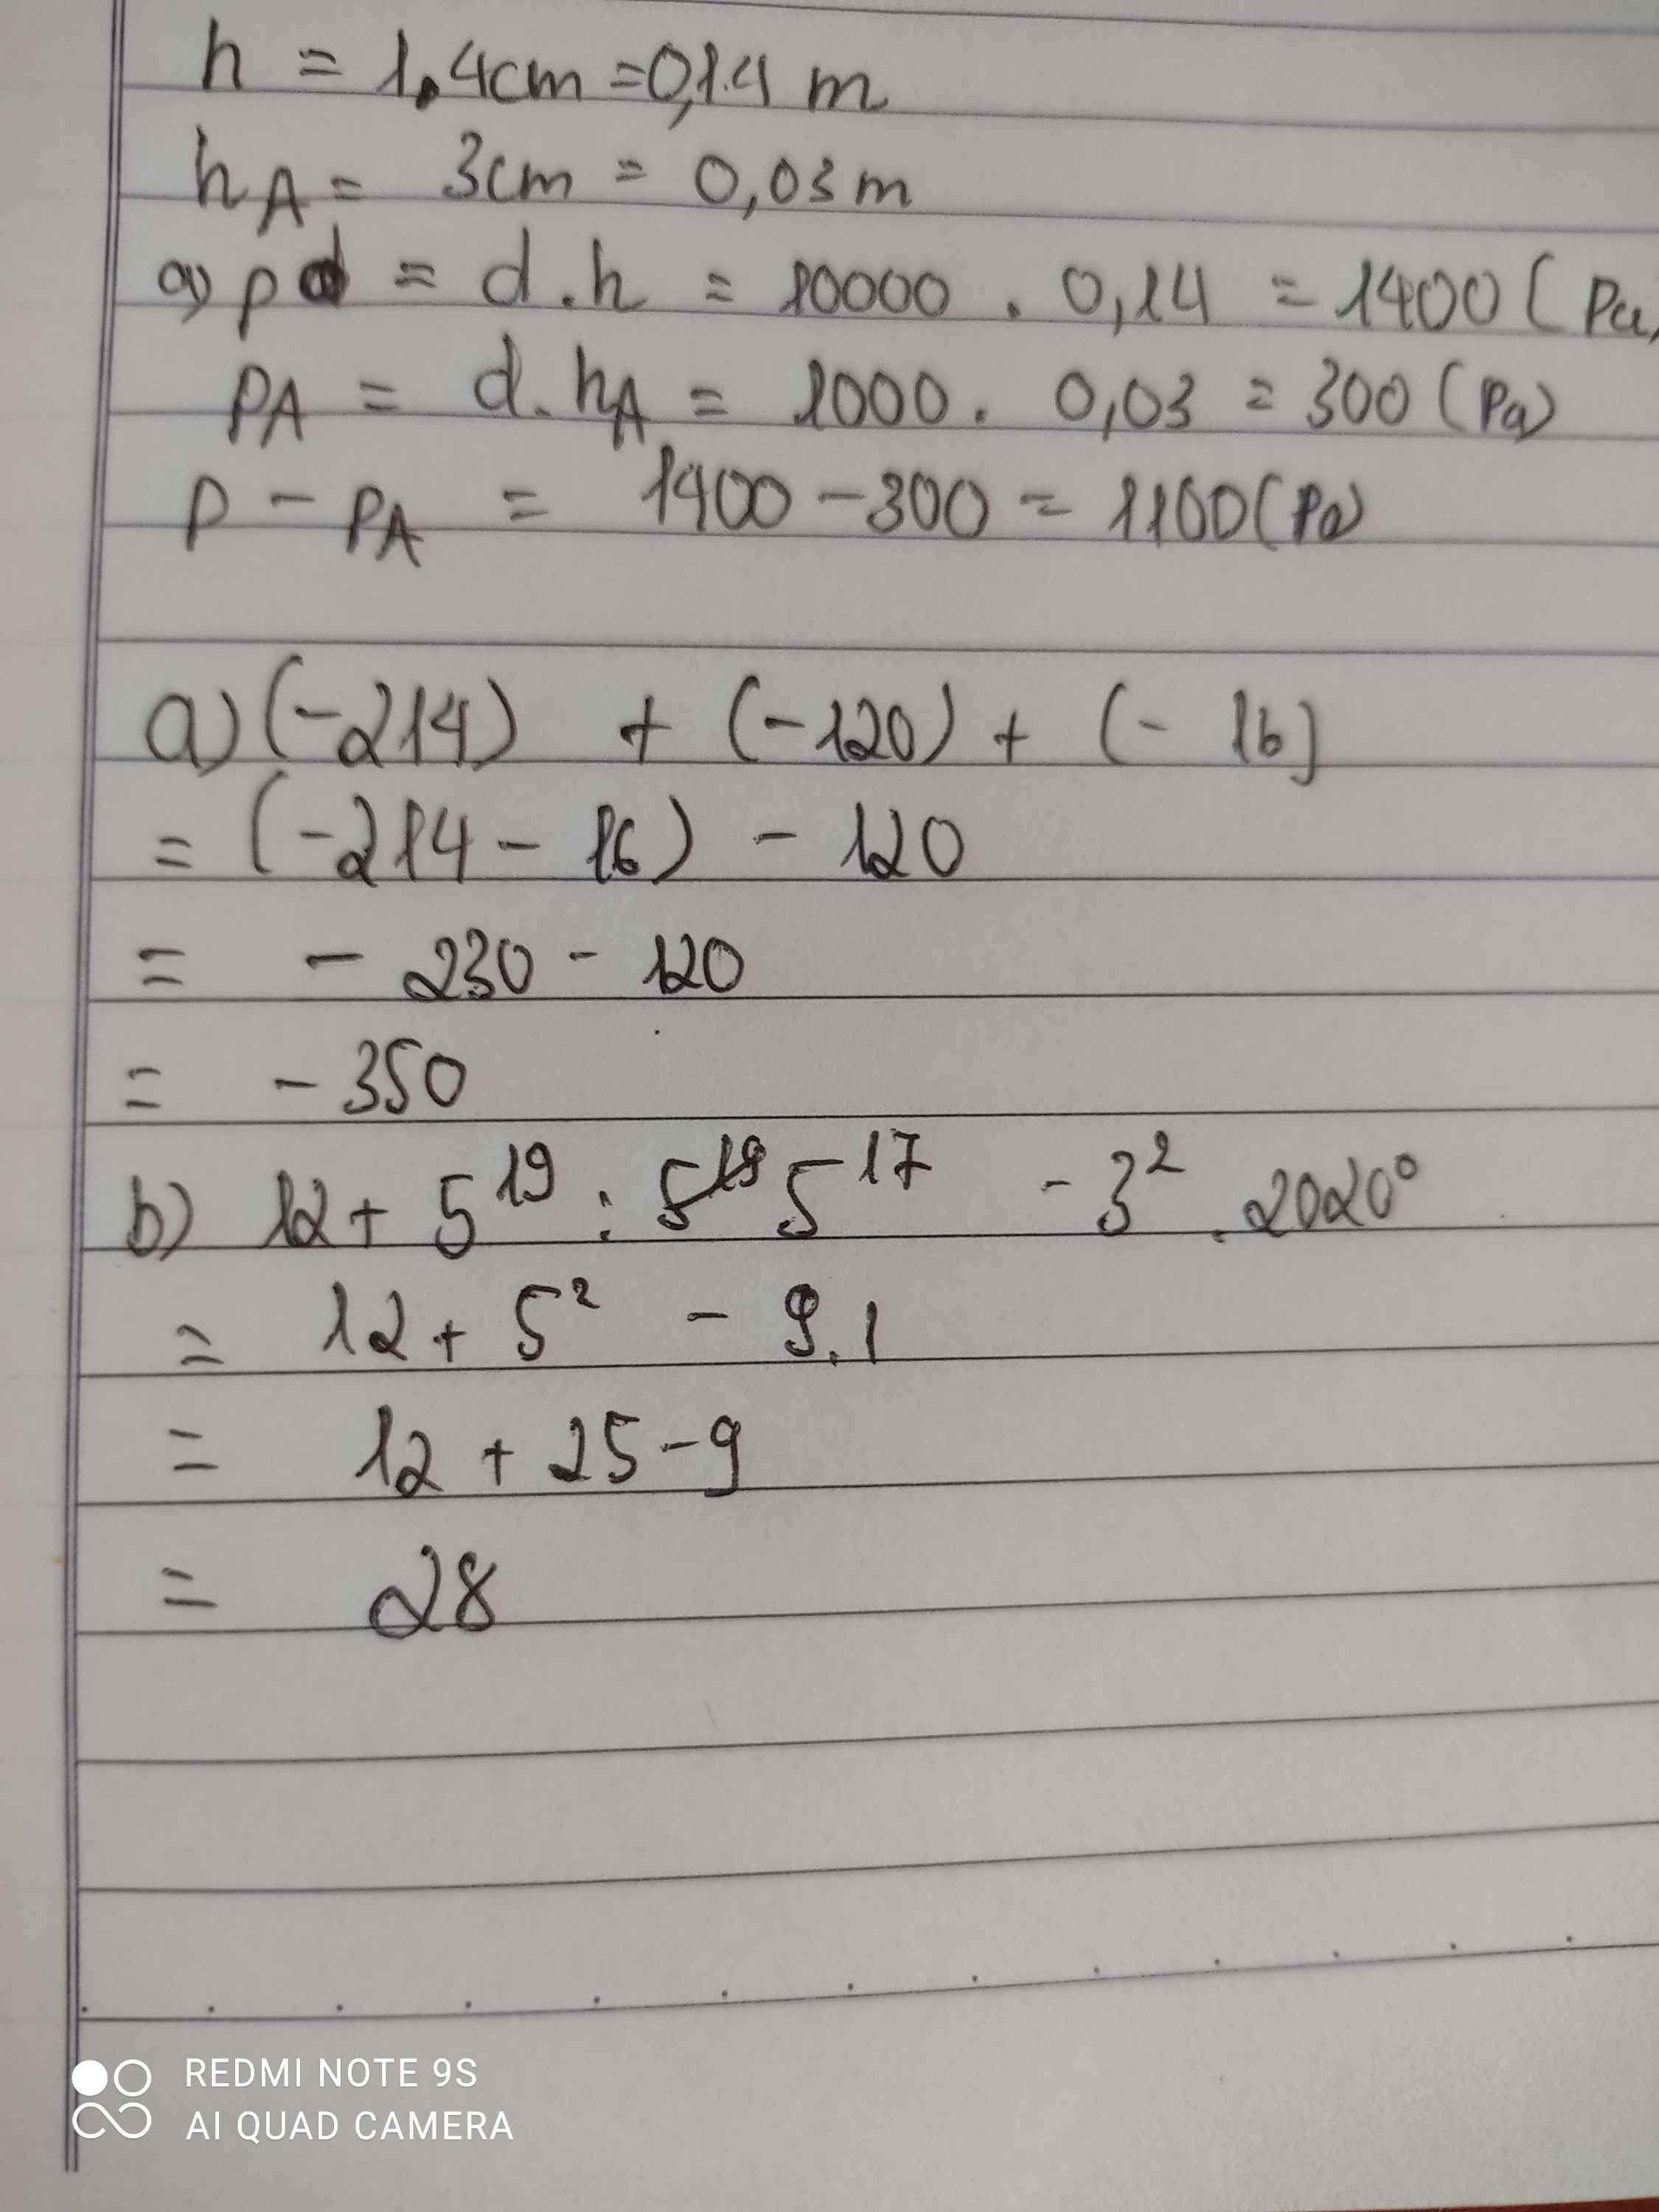 h = 1.4cm = 0,14 m
hA = 3cm = 0,03m
a) p = d.h = 10000 . 0,14 = 1400 (Pa)
pA = d.hA = 1000 . 0,03 = 300 (Pa)
p - pA = 1400 - 300 = 1100 (Pa)
a) (-214) + (-120) + (- 16)
= (-214 - 16) - 120
= - 230 - 120
= - 350
b) 12 + 5¹⁹ : 5¹⁷ - 3² . 2020⁰
= 12 + 5² - 9.1
= 12 + 25 - 9
= 28
REDMI NOTE 9S
AI QUAD CAMERA